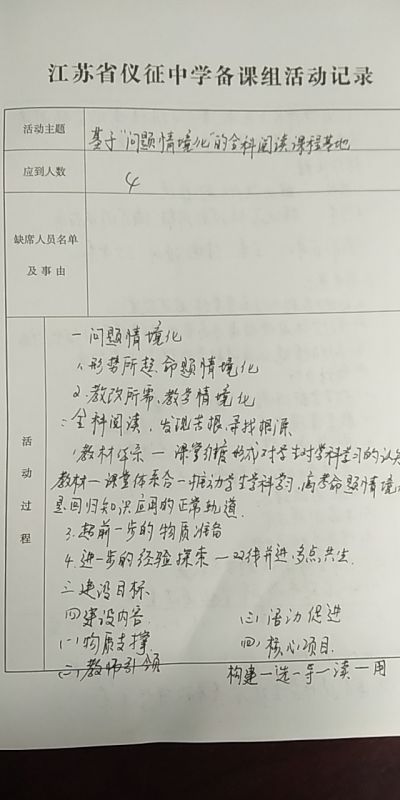 江苏省仪征中学备课组活动记录
活动主题
基于“问题情境化”的全科阅读课程基地
应到人数
4
缺席人员名单
及事由
活动过程
一问题情境化
1.形势所趋,命题情境化
2.教改所需,教学情境化
二全科阅读,发现苦恨,寻找根源
1.教材体系一课堂引渡形成对学生对学科学习的认知
教材一课堂体系合一推动学生学科学习,高考命题情境
是回归知识应用的正常轨道.
3.超前一步的物质准备
4.进一步的经验探索一双线并进,多点共生.
三建设目标
四建设内容
(一)物质支撑
(二)教师引领
(三)活动促进
(四)核心项目
构建一选一导一读一用